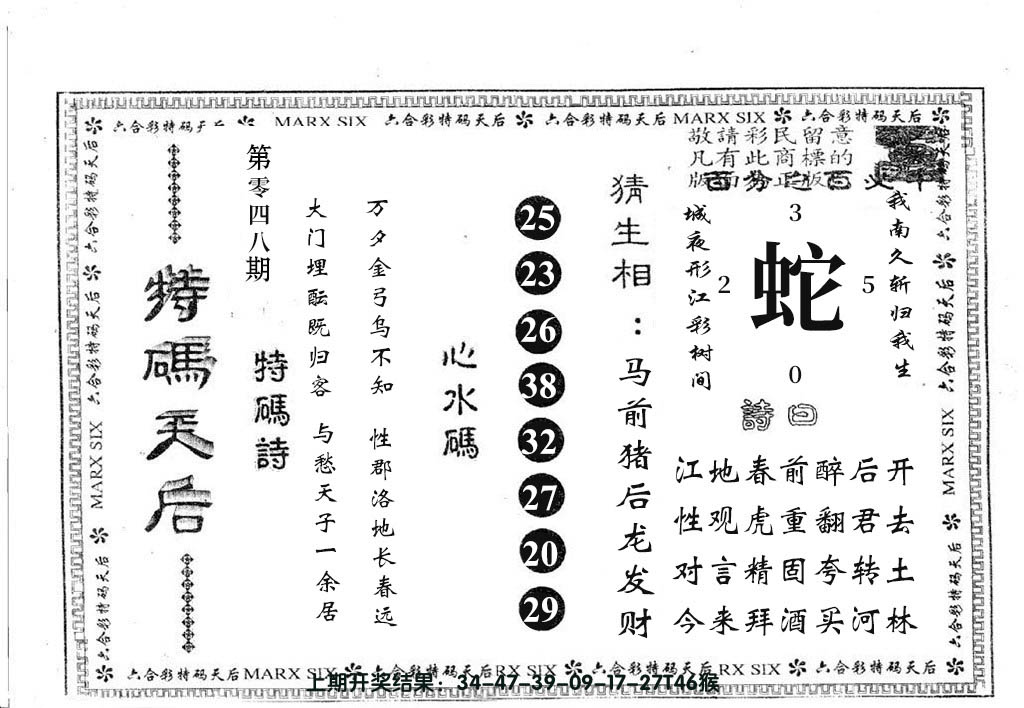 六合彩特码天后 MARX SIX 六合彩特码天后 六合彩特码天后 MARX SIX 六合彩特码天后
敬請彩民留意
凡有此商標的
版面為正版
第零四八期
特碼天后
特碼詩
大门埋酝既归客 与愁天子一余居
万夕金弓乌不知 性郡洛地长春远
心水碼
25
23
26
38
32
27
20
29
猜生相：马前猪后龙发财
城夜形江彩树间
3
2
蛇
5
0
我南久斩归我生
詩曰
江地春前醉后开
性观虎重翻君去
对言精固夸转土
今来拜酒买河林
六合彩特码天后 MARX SIX 六合彩特码天后
六合彩特码天后 MARX SIX 六合彩特码天后
六合彩特码天后MARX SIX 六合彩特码天后RX SIX 六合彩特码天后RX SIX 六合彩特码天后
上期开奖结果：34-47-39-09-17-27T46猴